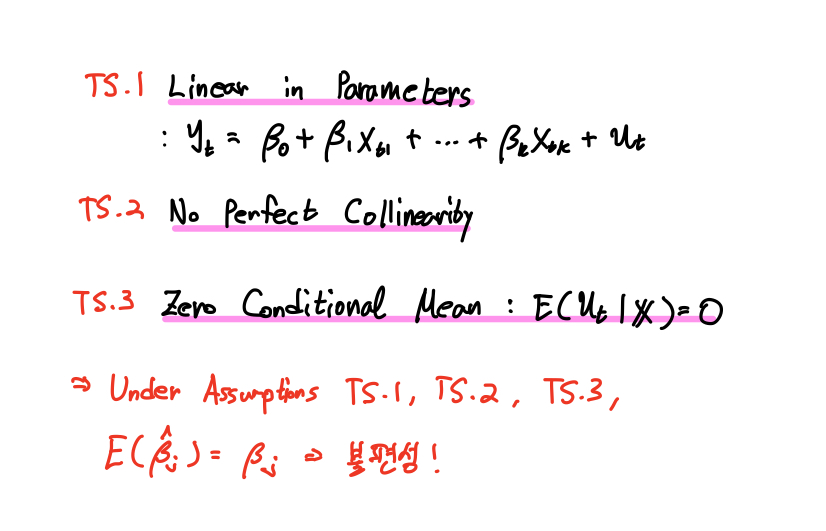 TS.1 Linear in Parameters
: yₜ = β₀ + β₁Xₜ₁ + ... + βₖXₜₖ + Uₜ
TS.2 No Perfect Collinearity
TS.3 Zero Conditional Mean : E(Uₜ|X)=0
⇒ Under Assumptions TS.1, TS.2, TS.3,
E(β̂ⱼ) = βⱼ ⇒ 불편성!